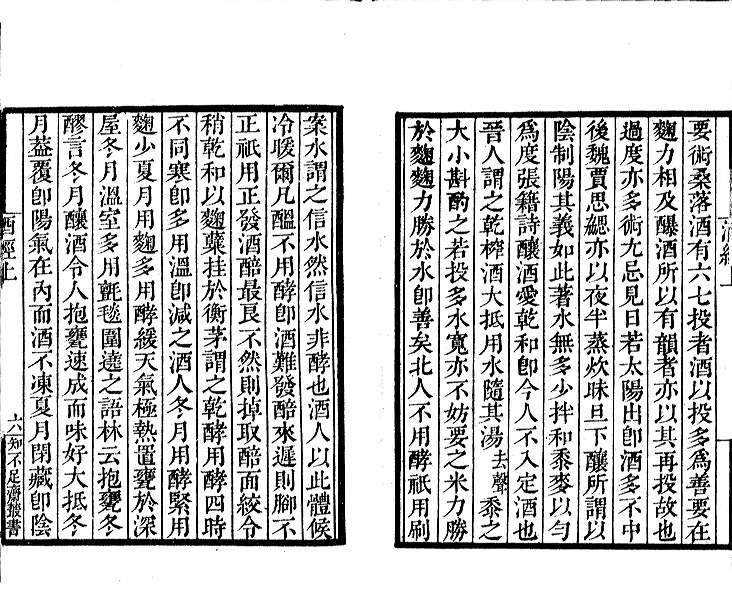 要術桑落酒有六七投者酒以投多爲善要在
麴力相及醸酒所以有韻者亦以其再投故也
過度亦多術尢忌見日若太陽出卽酒多不中
後魏賈思勰亦以夜半蒸炊昧旦下釀所謂以
陰制陽其義如此著水無多少拌和黍麥以勻
爲度張籍詩釀酒愛乾和卽今人不入定酒也
晉人謂之乾榨酒大抵用水隨其湯去聲黍之
大小斟酌之若投多水寬亦不妨要之米力勝
於麴麴力勝於水卽善矣北人不用酵祇用刷
案水謂之信水然信水非酵也酒人以此體候
冷暖爾凡醞不用酵卽酒難發醅來遲則腳不
正祇用正發酒醅最良不然則掉取醅面絞令
稍乾和以麴蘗挂於衡茅謂之乾酵用酵四時
不同寒卽多用溫卽減之酒人冬月用酵緊用
麴少夏月用麴多用酵緩天氣極熱置甕於深
屋冬月溫室多用氈毯圍遶之語林云抱甕冬
醪言冬月釀酒令人抱甕速成而味好大抵冬
月葢覆卽陽氣在內而酒不凍夏月閉藏卽陰
酒經上
六
知不足齋叢書